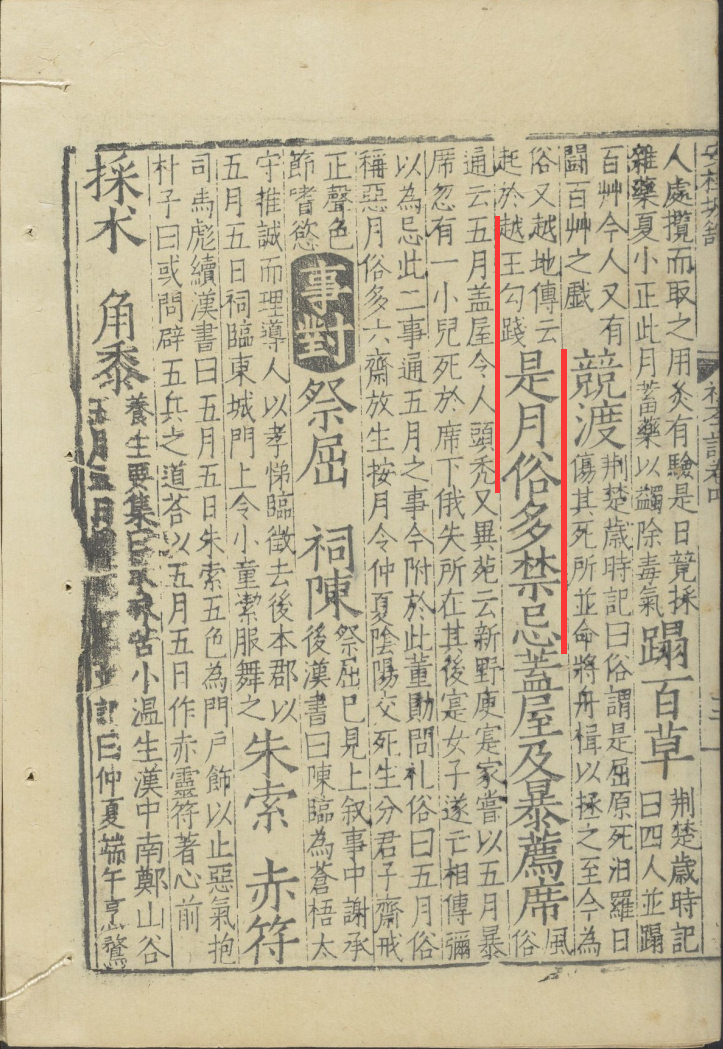 人處攬而取之用灸有驗是日競採
雜藥夏小正此月蓄藥以蠲除毒氣
蹋百草
荊楚歲時記
曰四人並蹋
百艸今人又有
鬪百艸之戲
競渡
荊楚歲時記曰俗謂是屈原死汨羅日
傷其死所並命將舟楫以拯之至今為
俗又越地傳云
起於越王勾踐
是月俗多禁忌蓋屋及暴薦席
風
俗
通云五月盖屋令人頭禿又異苑云新野庾寔家嘗以五月暴
席忽有一小兒死於席下俄失所在其後寔女子遂亡相傳彌
以為忌此二事通五月之事今附於此董勛問礼俗曰五月俗
稱惡月俗多六齋放生按月令仲夏陰陽交死生分君子齋戒
正聲色
節嗜慾
事對
祭屈 祠陳
祭屈已見上叙事中謝承
後漢書曰陳臨為蒼梧太
守推誠而理導人以孝悌臨徵去後本郡以
五月五日祠臨東城門上令小童潔服舞之
朱索 赤符
司馬彪續漢書曰五月五日朱索五色為門戶飾以止惡氣抱
朴子曰或問辟五兵之道荅以五月五日作赤靈符著心前
採朮 角黍
養生要集曰朮味苦小温生漢中南鄭山谷
五月五日 記曰仲夏端午烹鶩